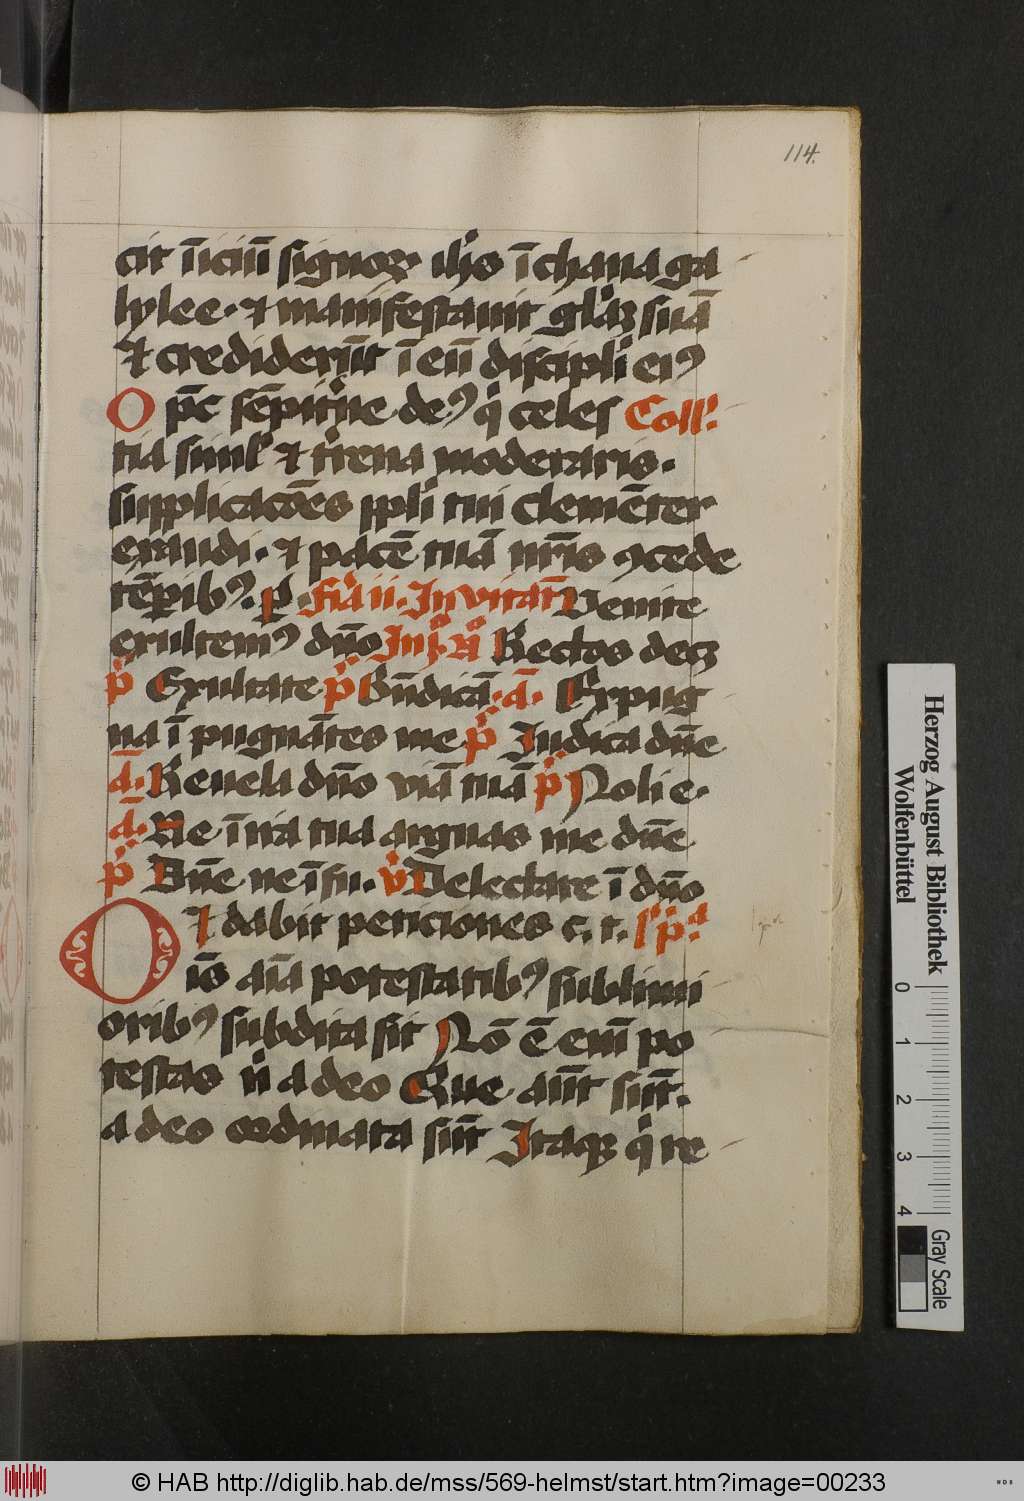 114.
cit īiciū signoꝝ· ihs̄ ī chana ga
lylee· ⁊ manifestauit gl̄aꝫ suā
⁊ crediderūt ī eū discipli eiꝰ
O pc̄ sēpit̄ne deꝰ qͥ celes Coll'
tia siml' ⁊ t̄rena moderaris·
supplicacōes ppli tui clemēter
exaudi· ⁊ pacē tuā nr̄is ꝯcede
tēꝑibꝰ. p̱. Fīa ii. Inuitat̄ Venite
exultemꝰ dn̄o In p̄ Rectos decꝫ
p̄s Exultate p̄s Bn̄dicā· a̅· Expug
na ī pugnātes me p̄s Iudica dn̄e
a̅· Reuela dn̄o viā tuā p̄s Noli e·
a̅· Ne ī ira tua arguas me dn̄e
p̄s Dn̄e ne ī fu. v̄ Delectare ī dn̄o
⁊ dabit peticiones c. t.
Oīs aīa potestatibꝰ sublimi
oribꝰ subdita sit Nō ē enī po
testas n̄ a deo Que aūt sūt·
a deo ordinata sūt Itaqꝫ qͥ re
Herzog August Bibliothek
Wolfenbüttel
0 1 2 3 4
Gray Scale
© HAB http://diglib.hab.de/mss/569-helmst/start.htm?image=00233